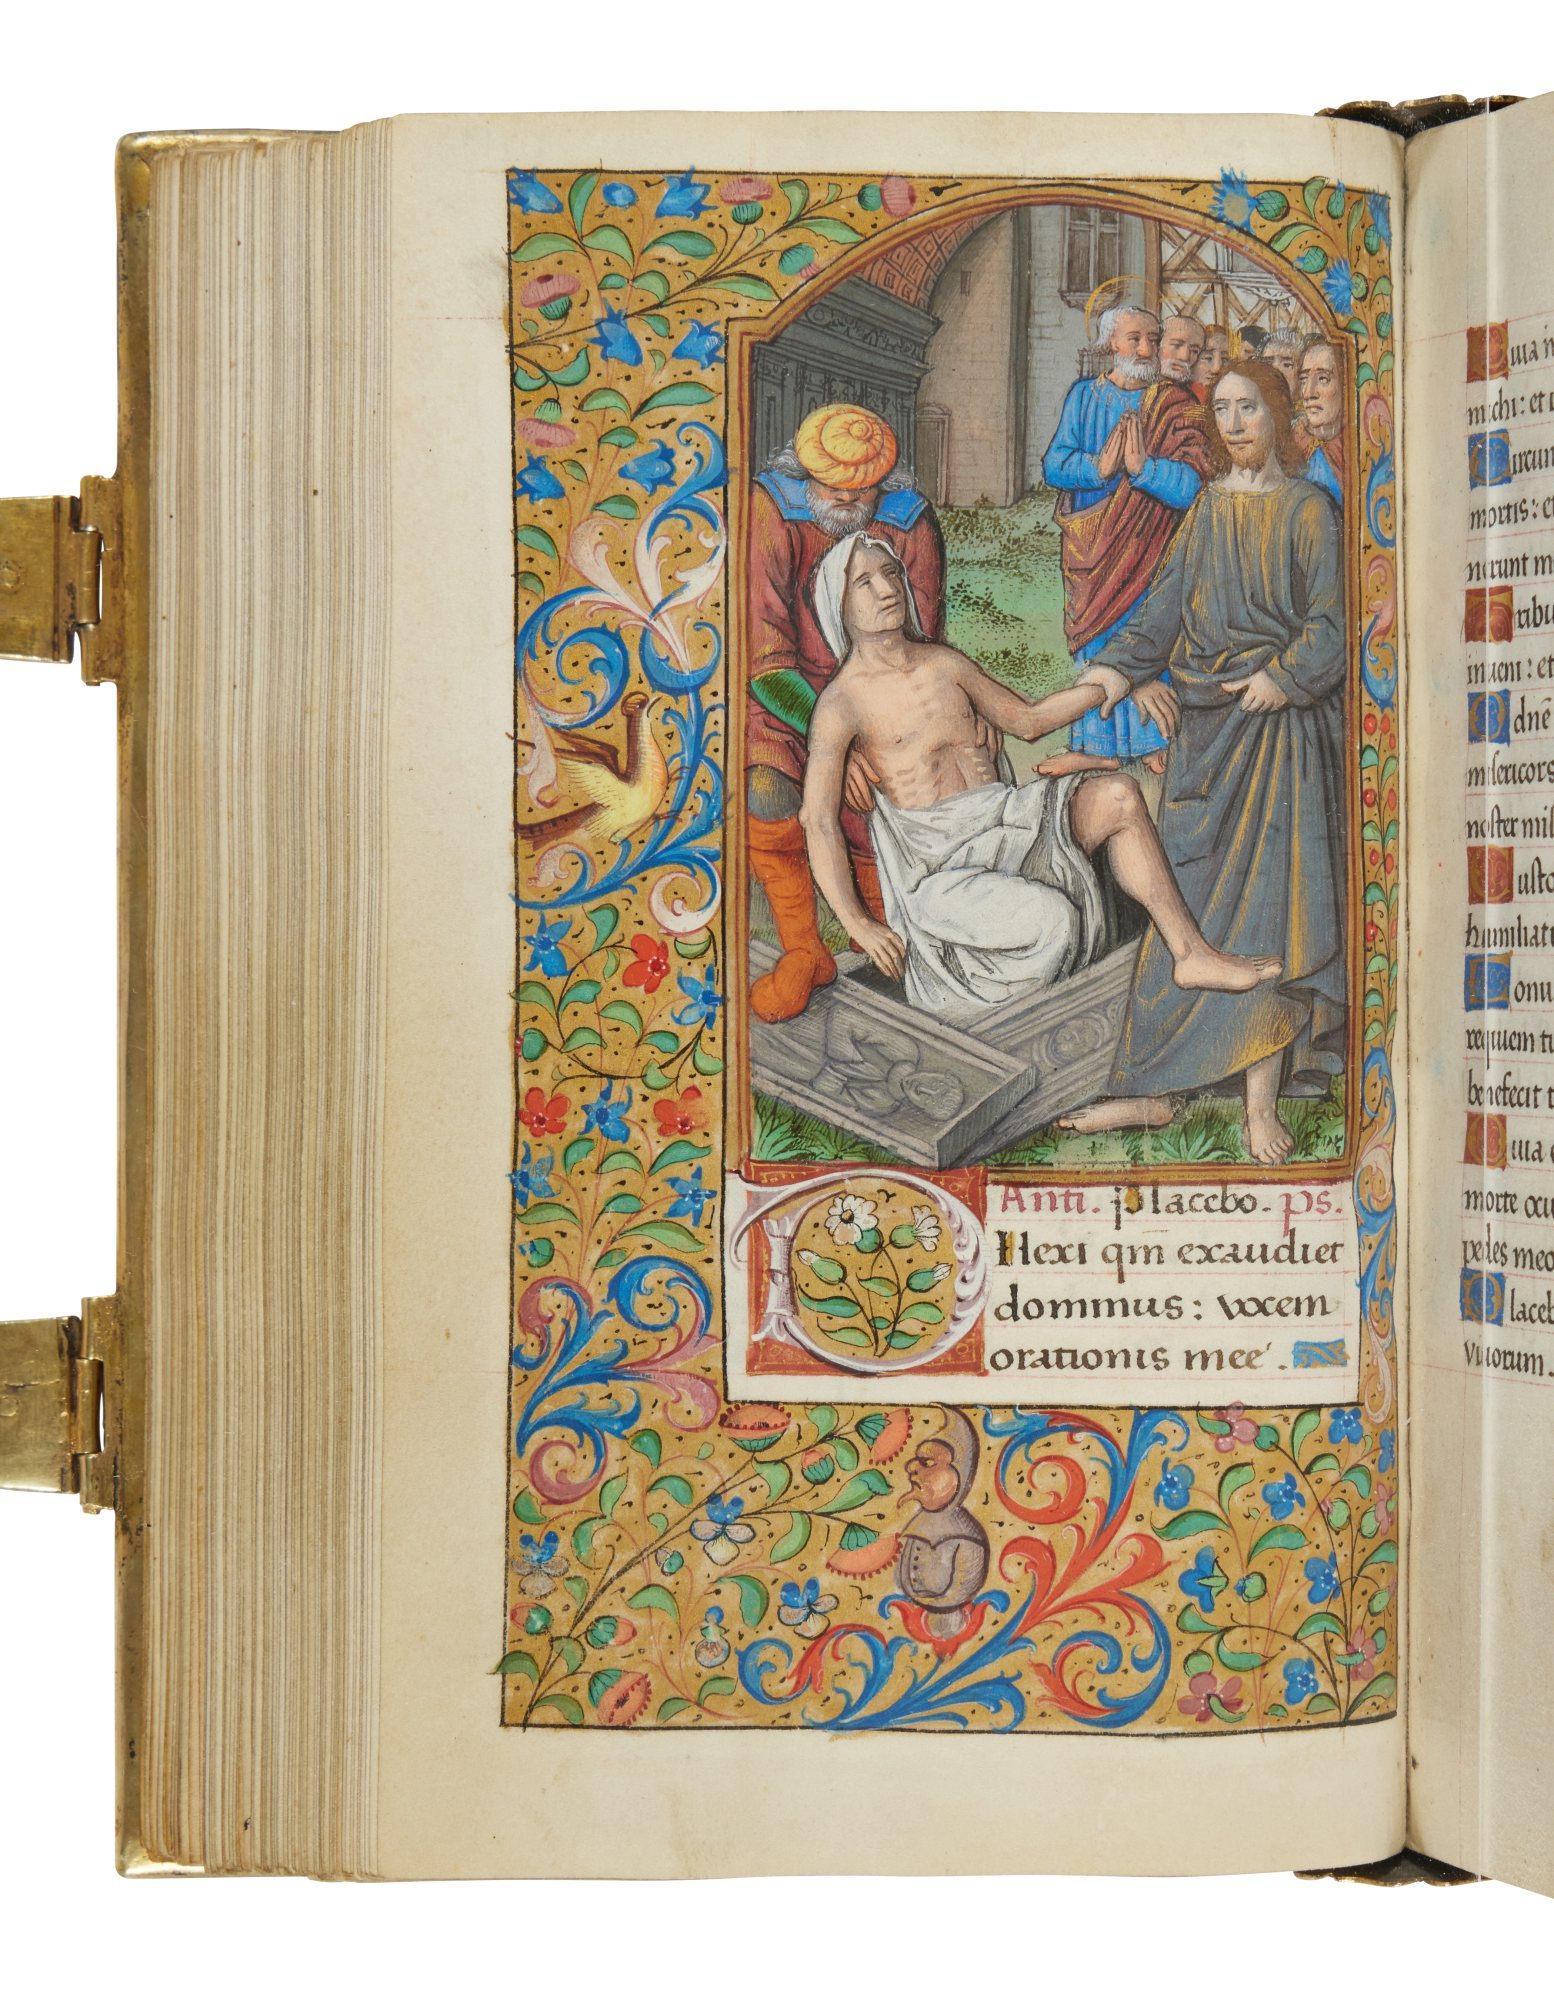 Anti. Placebo. ps.
DIlexi qm̄ exaudiet
dominus: vocem
orationis meę.
Quia in
michi: et i
Circun
mortis: et
nerunt m
Tribu
inueni: et
O dnē
misericors
noster mis
Custo
humiliatu
Conu
requiem tu
benefecit t
Quia e
morte ocu
pedes meo
Placeb
viuorum.